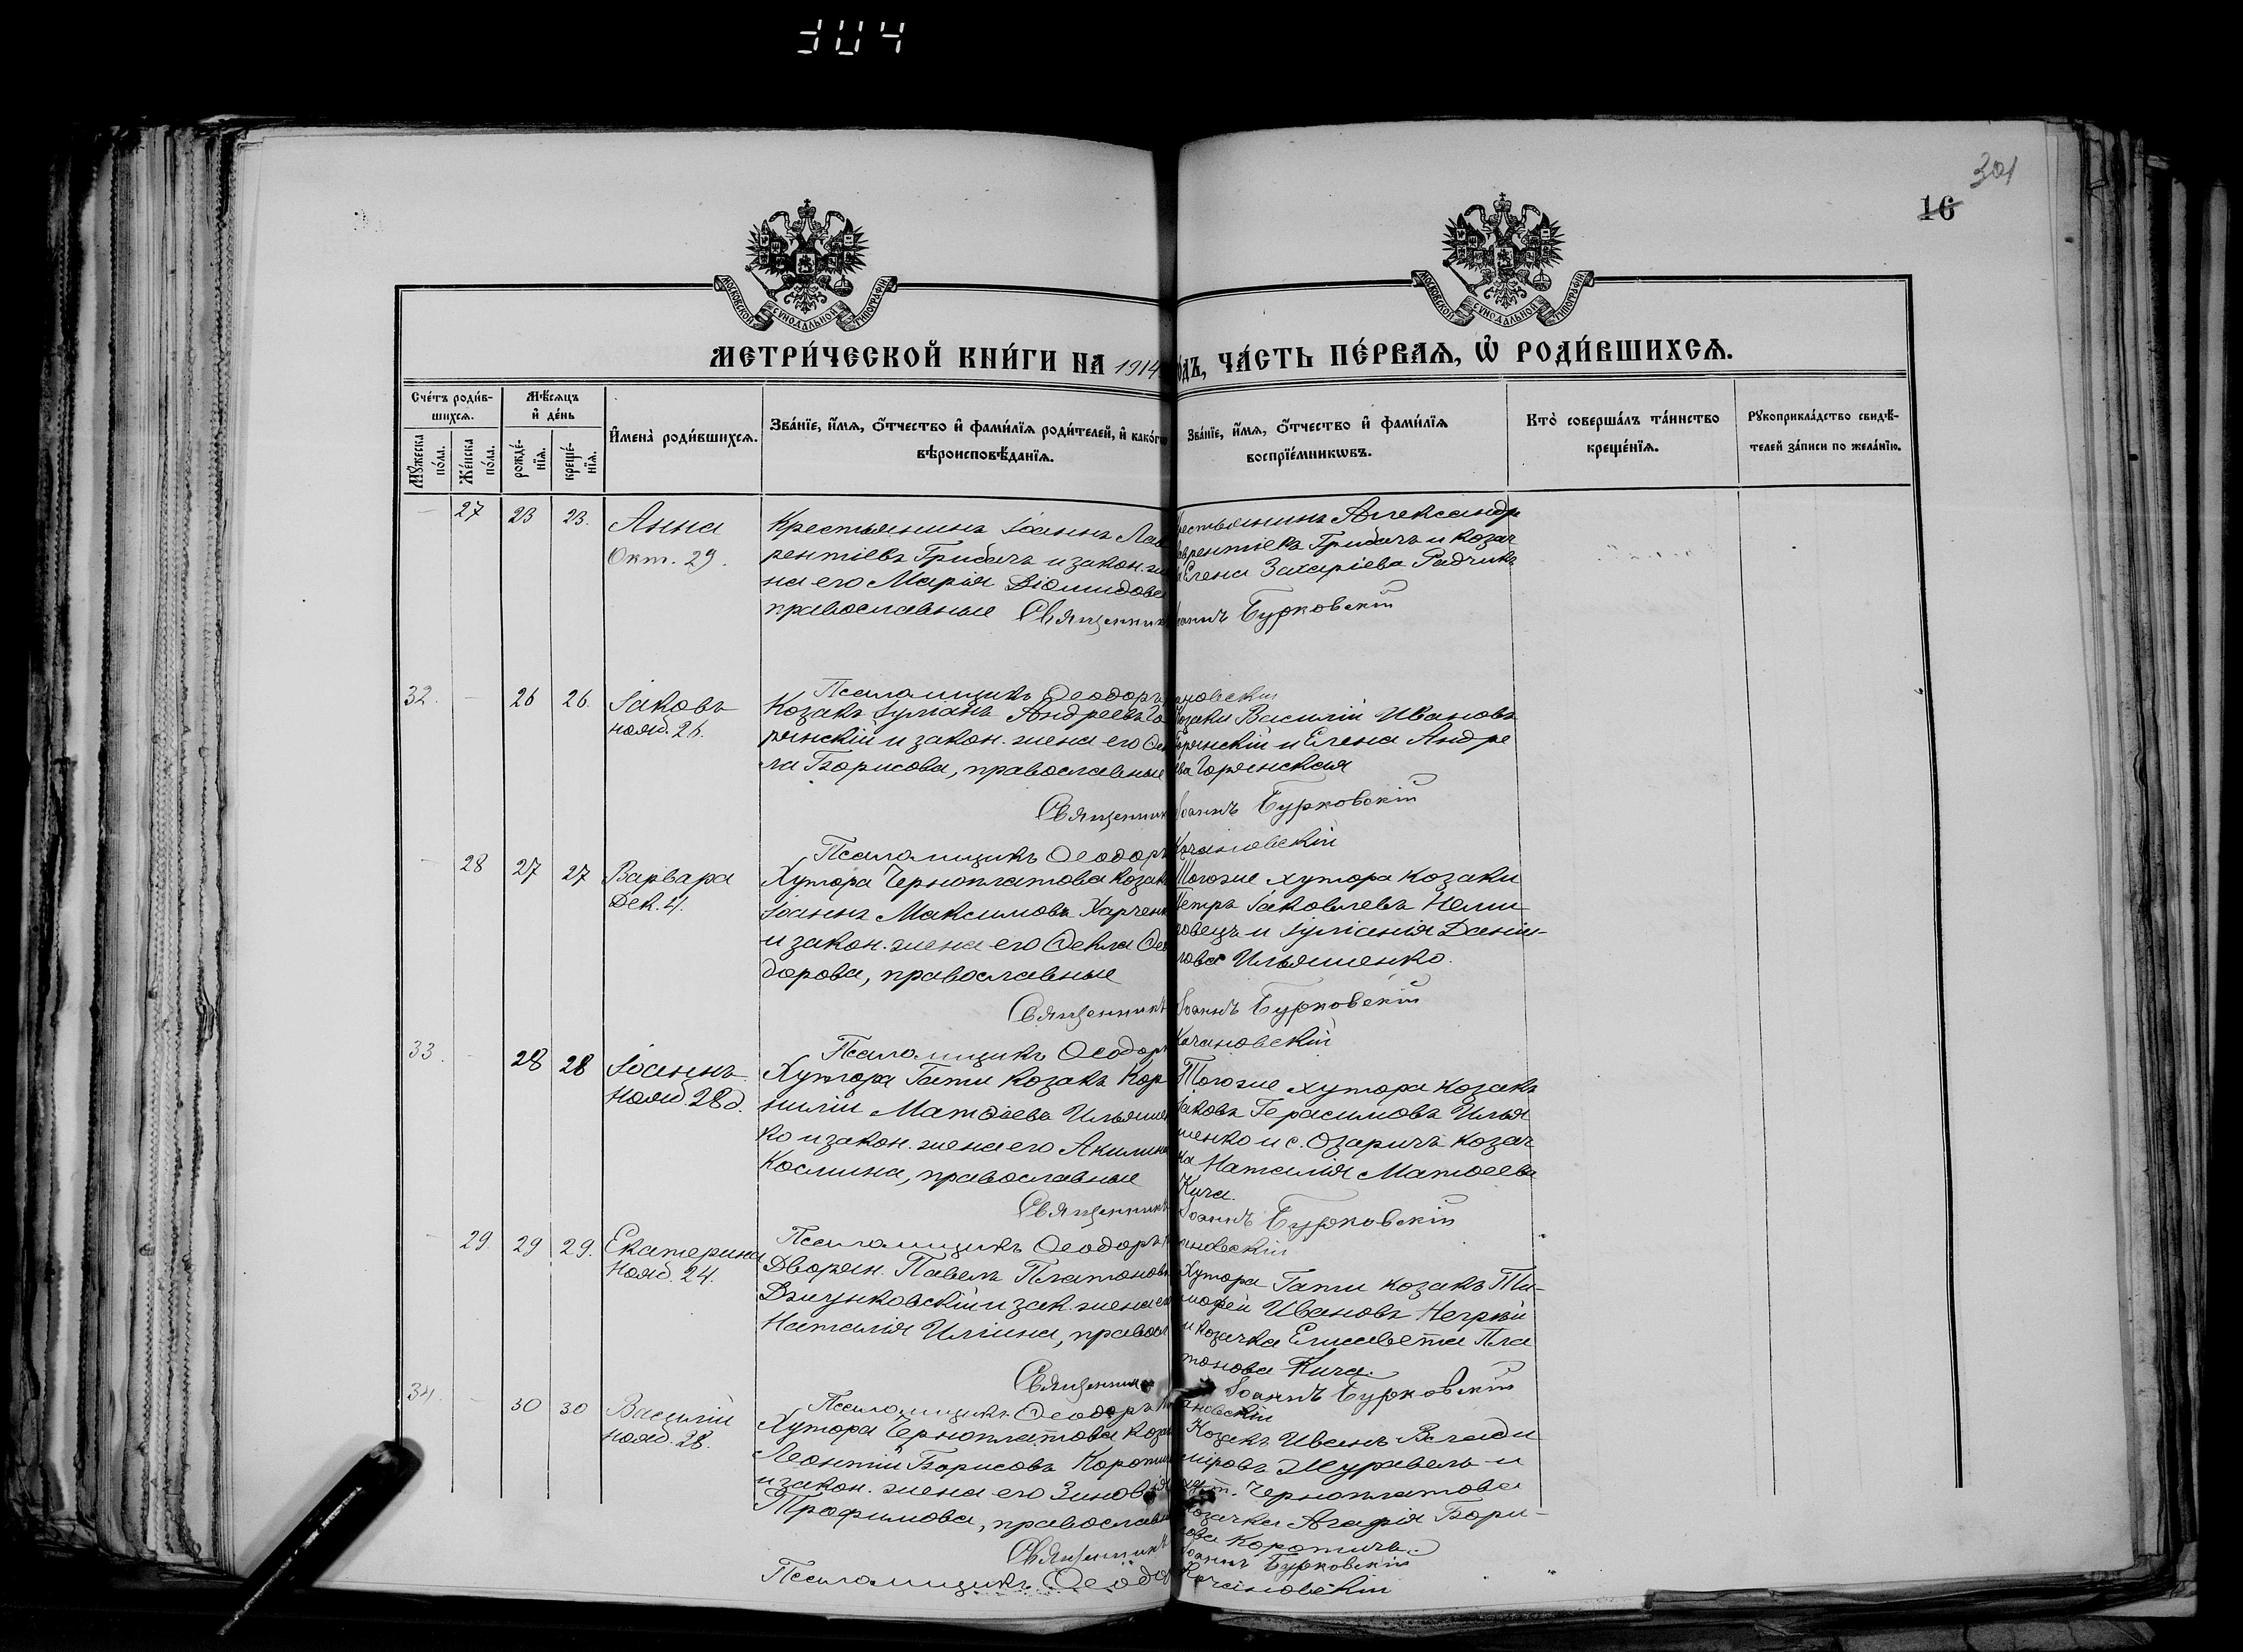 304
301
16
МОСКОВСКОЙ СѴНОДАЛЬНОЙ ТИПОГРАФІИ
МОСКОВСКОЙ СѴНОДАЛЬНОЙ ТИПОГРАФІИ
МЕТРИ́ЧЕСКОЙ КНИ́ГИ НА 1914 одъ, ЧА́СТЬ ПЕ́РВАѦ, Ѽ РОДИ́ВШИХСѦ.
Сче́тъ роди́в-
шихсѧ.
Мꙋ́жеска по́ла.
Же́нска по́ла.
Мѣ́сѧцъ
и҆ де́нь
рожде́-
нїѧ.
креще́-
нїѧ.
И҆мена̀ роди́вшихсѧ.
Зва́нїе, и҆́мѧ, ѻ҆́тчество и҆ фами́лїѧ роди́телей, и҆ како́гѡ
вѣроисповѣ́данїѧ.
Зва́нїе, и҆́мѧ, ѻ҆́тчество и҆ фами́лїѧ
воспрїе́мникѡвъ.
Кто̀ соверша́лъ та́инство
креще́нїѧ.
Рꙋкоприкла́дство свидѣ́-
телей за́писи по жела́нїю.
27 23 23. Анна
Окт. 29.
Крестьянинъ Іоаннъ Лав
рентіевъ Грибачъ и закон. же
на его Марія Діомидова
православные
рестьянинъ Александр
аврентіевъ Грибачъ и козач
Елена Захаріева Радчикъ
Священникъ Іоаннъ Бурковскій
Псаломщикъ Ѳеодоръ ановскій
32. 26 26. Іаковъ
нояб. 26.
Козакъ Іуліанъ Андреевъ Го
рянскій и закон. жена его Ѳек
ла Борисова, православные
Козаки Василій Ивановъ
Горянскій и Елена Андре
ева Горянская
Священник Іоаннъ Бурковскій
Псаломщикъ Ѳеодоръ Качановскій
28 27 27 Варвара
Дек. 4.
Хутора Черноплатова козакъ
Іоаннъ Максимовъ Харченк
и закон. жена его Ѳекла Ѳео
дорова, православные
Тогоже хутора козаки
Петръ Іаковлевъ Неми
ровецъ и Іуліанія Даніи-
лова Ильяшенко.
Священникъ Іоаннъ Бурковскій
Псаломщикъ Ѳеодоръ Качановскій
33. 28 28 Іоаннъ
Нояб. 28 д.
Хутора Гати козакъ Кор
нилій Матѳіевъ Ильяшен
ко и закон. жена его Акилина
Космина, православные
Тогоже хутора козакъ
Іаковъ Герасимовъ Илья
шенко и с. Озаричъ козач
ка Наталія Матѳеева
Кича.
Священникъ Іоаннъ Бурковскій
Псаломщикъ Ѳеодоръ ановскій
29. 29 29. Екатерина
Нояб. 24.
Дворян. Павелъ Платоновъ
Джунковскій и зак. жена ег
Наталія Иліина, правосл
Хутора Гати козакъ Ти-
моѳей Ивановъ Негрѣй
и козачка Елисавета Пла
тонова Кича.
Священник Іоаннъ Бурковскій
Псаломщикъ Ѳеодоръ ановскій
34. 30 30 Василій
нояб. 28.
Хутора Черноплатова коза
Леонтій Борисовъ Коротич
и закон. жена его Зиновія
Трофимова, православн
Козакъ Иванъ Влади
міровъ Журавель и
хут. Черноплатова
козачка Агафія Бори-
сова Коротичъ.
Священникъ Іоаннъ Бурковскій
Псаломщикъ Ѳеодо Качановскій